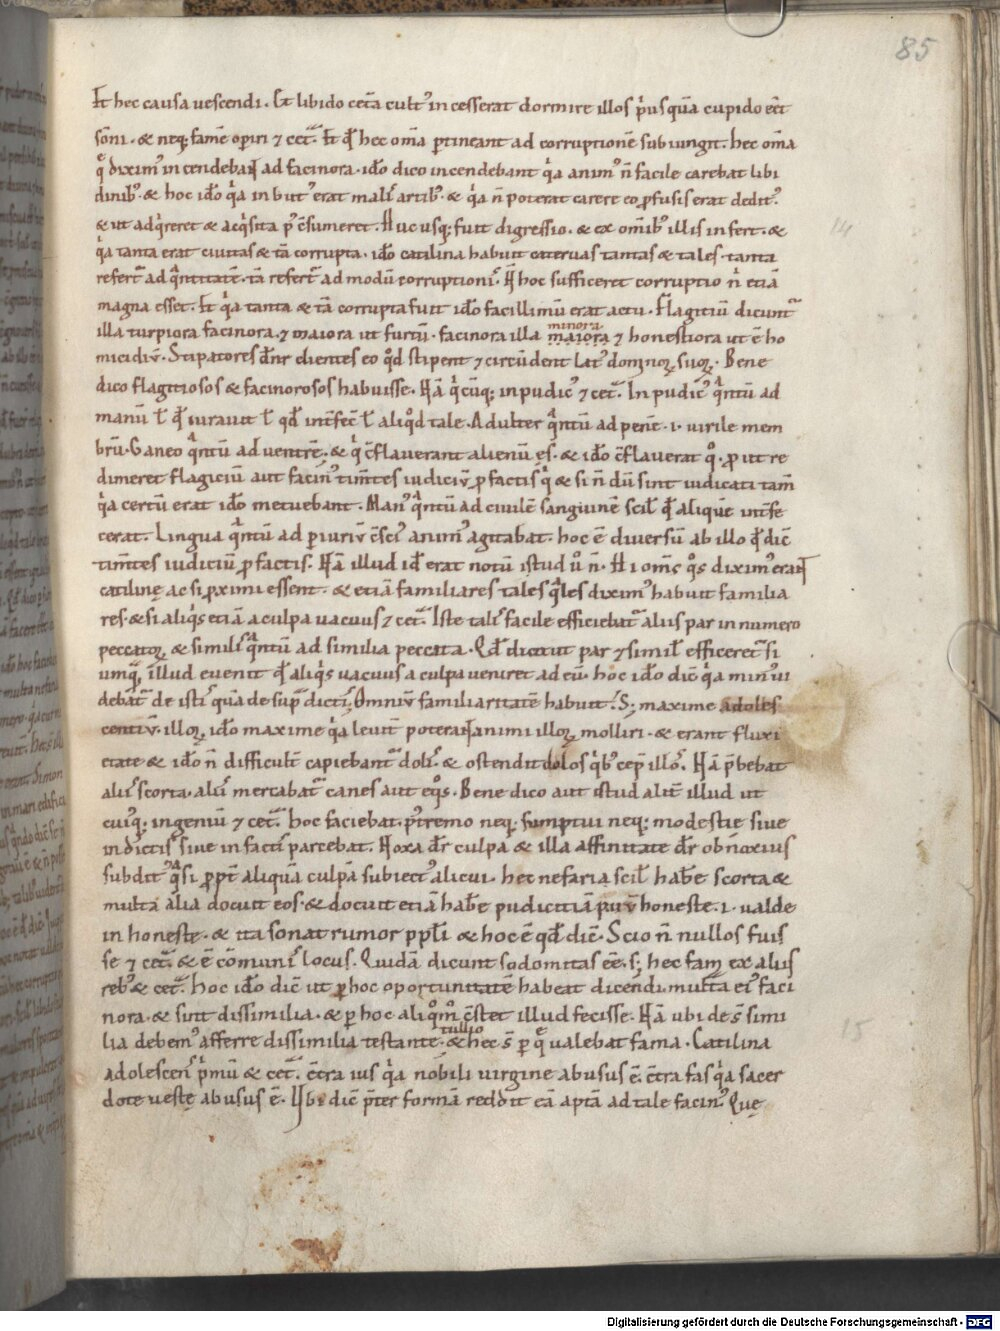 85
Et hec causa uescendi. Et libido cet̄a cult᷒ in cesserat dormire illos p̓us quā cupido eēt
sōni. & neq; famē operiri ⁊ cet̄. Et qd̄ hec om̄a ꝑtineant ad corruptionē subiungit. hec om̄a
q̄ diximꝰ incendebant ad facinora. ido dico incendebant qͥa animꝰ n̄ facile carebat libi
dinibꝰ. & hoc ido qͥa inbutꝰ erat malis artibꝰ. & qͥa n̄ poterat carere eo ꝓfusiꝰ erat deditꝰ.
& ut adqͥreret & acqͥsita
Huc usq; fuit digressio. & ex om̄ibꝰ illis infert. &
14
qͥa tanta erat ciuitas & tā corrupta. ido catilina habuit cateruas tantas & tales. tanta
refert ad qͣntitatē. tā refert ad modū corruptionis. Nā hoc sufficeret corruptio nͥ etiā
magna esset. Et qͥa tanta & tā corrupta fuit ido facillimū erat actu. Flagitiū dicunt᷒
illa turpiora facinora. ⁊ maiora ut furtū. facinora illa maiora ⁊ honestiora ut ē ho
minora
micidiū. Stipatores dn̄r clientes eo qd̄ stipent ⁊ circūdent lat᷒ dominoꝝ suoꝝ. Bene
dico flagitiosos & facinorosos habuisse. Nā qͥcūq; inpudicꝰ ⁊ cet̄. Inpudicꝰ qͣntū ad
manū ł qd̄ iurauit ł qd̄ int̄fec̄ ł aliqͥd tale. Adulter qͣntū ad penē .i. uirile mem
brū. Ganeo qͣntū ad uentrē. & qͥ c̄flauerant alienū ęs. & ido c̄flauerat qͦ. ꝓ ut re
dimeret flagiciū aut facinꝰ tim̄tes iudiciū ꝓ factis qͥ & si n̄ dū sint iudicati tam̄
qͥa certū erat ido metuebant. Manꝰ qͣntū ad ciuilē sanguinē scił qd̄ aliquē int̄fe
cerat. Lingua qͣntū ad ꝑiuriū c̄sciꝰ animꝰ agitabat. hoc ē diuersū ab illo qd̄ dic̄
tim̄tes iudiciū ꝓ factis. Nā illud id̄ erat notū istud u̓ n̄. Hi om̄s qͦs diximꝰ erant
catilinę ac si ꝓximi essent. & etiā familiares tales qͣles diximꝰ habuit familia
res. & si aliqͥs etiā a culpa uacuus ⁊ cet̄. Iste talis facile efficiebat᷒ aliis par in numero
peccatoꝝ & similis qͣntū ad similia peccata. Qd̄ dicit ut par ⁊ similis efficeret᷒ si
umqͣ illud euenit qd̄ aliqͥs uacuus a culpa ueniret ad eū. hoc ido dic̄ qͥa minꝰ ui
debat᷒ de istis quā de supͣdictis. Omniū familiaritatē habuit. S; maxime adoles
centiū. illoꝝ ido maxime qͥa leuit̄ poterant animi illoꝝ molliri. & erant fluxi
etate & ido n̄ difficult̄ capiebant᷒ dolis. & ostendit dolos qͥbꝰ cep̄ illos. Nā p̄bebat
aliis scorta. aliis mercabat᷒ canes aut eqͦs. Bene dico aut istud alit̄ illud ut
cuiꝰq; ingeniū ⁊ cet̄. hoc faciebat. postremo neq; sumptui neq; modestie siue
indictis siue in factis parcebat. Noxa dr̄ culpa & illa affinitate dr̄ obnoxius
subditꝰ qͣsi ꝓpt̄ aliquā culpā subiectꝰ alicui. hec nefaria scił habe̓ scorta &
multa alia docuit eos. & docuit etiā habe̓ pudicitiā parū honeste .i. ualde
in honestę. & ita sonat rumor pp̄li & hoc ē qd̄ dic̄. Scio n̄ nullos fuis
se ⁊ cet̄. & ē cōmunis locus. Quidā dicunt sodomitas eē. s; hec fama ex aliis
rebꝰ & cet̄. hoc ido dic̄ ut ꝑ hoc oportunitatē habeat dicendi. multa eiꝰ faci
nora. & sint dissimilia. & ꝑ hoc
c̄stet illud fecisse. Nā ubi des̄ simi
15
lia debemꝰ afferre dissimilia testante. & hec s̄ ꝑ q̄ ualebat fama. Catilina
tullio
adolescens pͥmū & cet̄. c̄tra ius qͥa nobili uirgine abusus ē. c̄tra fas qͥa sacer
dote uestę abusus ē. Ubi dic̄ p̄ter formā reddit eā aptā ad tale facinꝰ. Quę
Digitalisierung gefördert durch die Deutsche Forschungsgemeinschaft - DFG